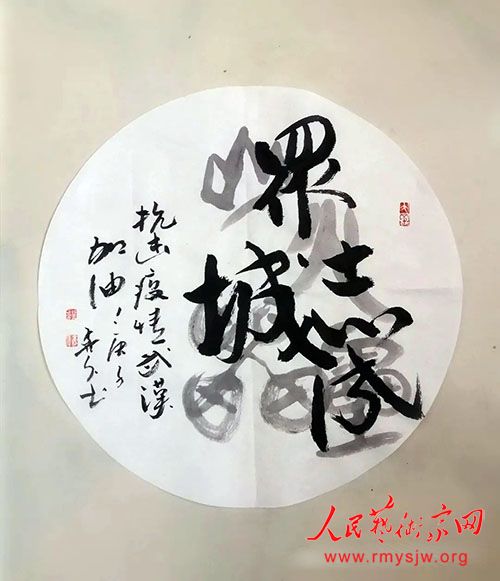 眾志成
城
抗击疫情武漢
加油！庚子
书
人民藝術家网
www.rmysjw.org